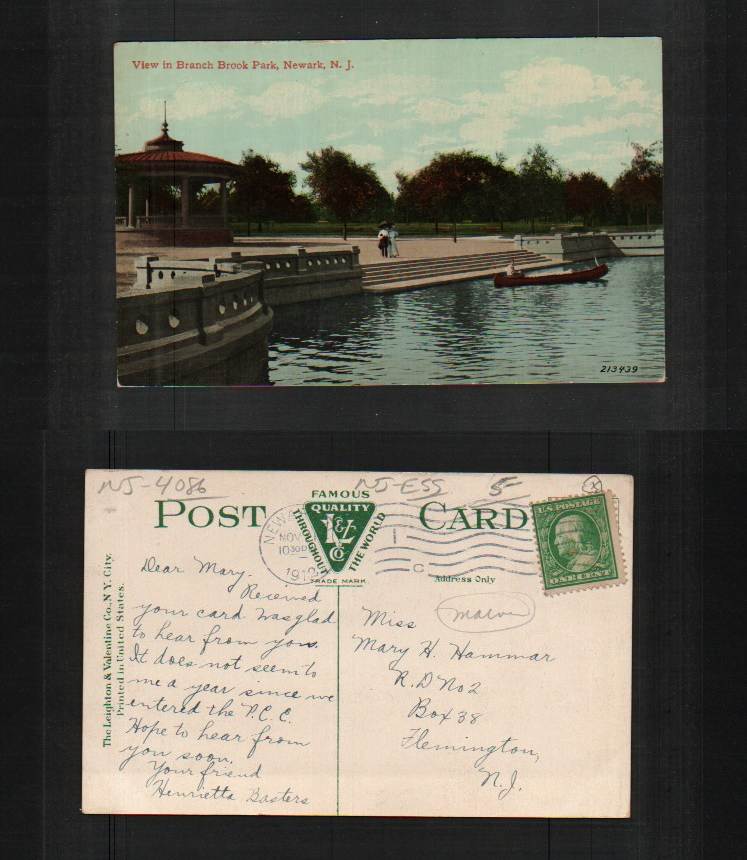 View in Branch Brook Park, Newark, N. J.
213439
NJ-4086 NJ-ESS 5- X
POST CARD
FAMOUS
QUALITY
THROUGHOUT THE WORLD
L&V
CO
TRADE MARK
Address Only
NEWA
NOV
1030P
191
C
U.S. POSTAGE
ONE CENT
The Leighton & Valentine Co., N.Y. City.
Printed in United States.
Dear Mary.
Received
your card was glad
to hear from you.
It does not seem to
me a year since we
entered the P.C.C.
Hope to hear from
you soon.
Your friend
Henrietta Basters
Miss
Mary H. Hammar
R.D No 2
Box 38
Flemington,
N.J.